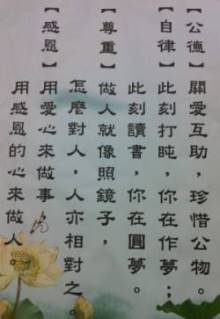 【公德】關愛互助，珍惜公物。
【自律】此刻打盹，你在作夢；
此刻讀書，你在圓夢。
【尊重】做人就像照鏡子，
怎麼對人，人亦相對之。
【感恩】用愛心來做事，
用感恩的心來做人。